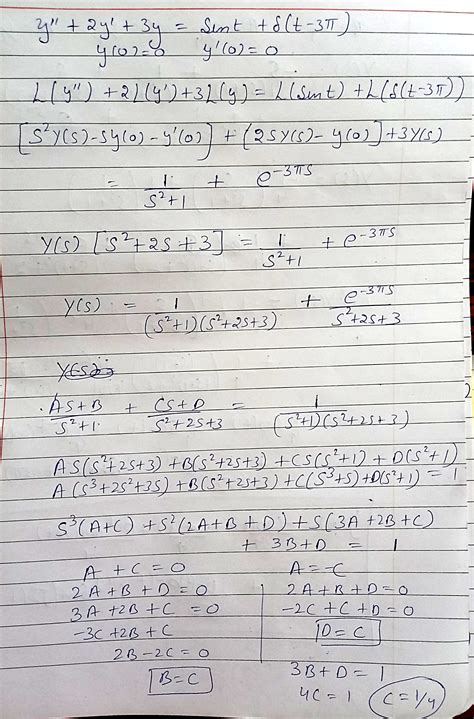 y'' + 2y' + 3y = Sint + δ(t-3π)
y(0)=0 y'(0)=0
L(y'') + 2L(y') + 3L(y) = L(Sint) + L(δ(t-3π))
[S²Y(s) - Sy(0) - y'(0)] + (2SY(s) - y(0)] + 3Y(s)
= 1/(S²+1) + e^(-3πs)
Y(s) [S²+2S+3] = 1/(S²+1) + e^(-3πs)
Y(s) = 1/((S²+1)(S²+2S+3)) + e^(-3πs)/(S²+2S+3)
(AS+B)/(S²+1) + (CS+D)/(S²+2S+3) = 1/((S²+1)(S²+2S+3))
AS(S²+2S+3) + B(S²+2S+3) + CS(S²+1) + D(S²+1)
A(S³+2S²+3S) + B(S²+2S+3) + C(S³+S) + D(S²+1) = 1
S³(A+C) + S²(2A+B+D) + S(3A+2B+C)
+ 3B+D = 1
A + C = 0
2A + B + D = 0
3A + 2B + C = 0
-3C + 2B + C
2B - 2C = 0
B = C
A = -C
2A + B + D = 0
-2C + C + D = 0
D = C
3B + D = 1
4C = 1 C = 1/4